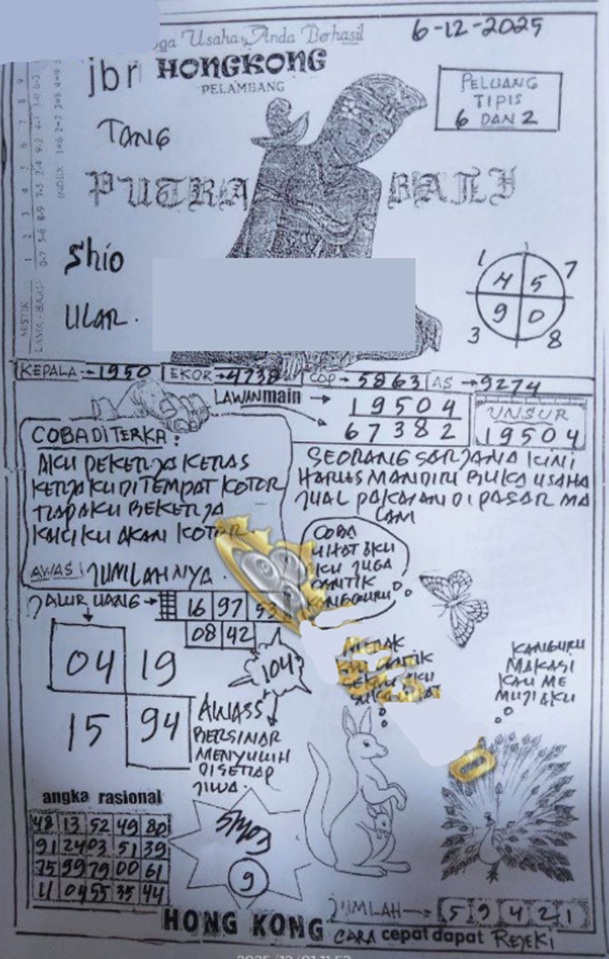 oga Usaha, Anda Berhasil
6-12-2025
jbr HONGKONG
PELAMBANG
PELUANG
TIPIS
6 DAN 2
TANG
PUTRA BALI
Shio
ULAR.
1 7
4 5
9 0
3 8
KEPALA → 1950 EKOR → 4738 COP → 5863 AS → 9274
LAWANmain →
19504
67382
UNSUR
19504
COBA DITERKA:
AKU PEKERJA KERAS
KERJAKU DI TEMPAT KOTOR
TIAP AKU BEKERJA
KAKIKU AKAN KOTOR
AWAS! JUMLAHNYA.
SEORANG SARJANA KINI
HARUS MANDIRI BUKA USAHA
JUAL PAKAIAN DI PASAR MA
LAM
COBA
LIHAT AKU
AKU JUGA
CANTIK
JALUR UANG →
16 97 53
08 42
04 19
15 94
104
AWASS
BERSINAR
MENYULUH
DISETIAP
JIWA.
MERAK
CANTIK
KANGURU
MAKASI
KAU ME
MUJI AKU
angka rasional
48 13 52 49 80
91 24 03 51 39
75 99 79 00 61
11 04 55 35 44
9
JUMLAH → 5 9 4 2 1
HONG KONG CARA cepat dapat REJEKI